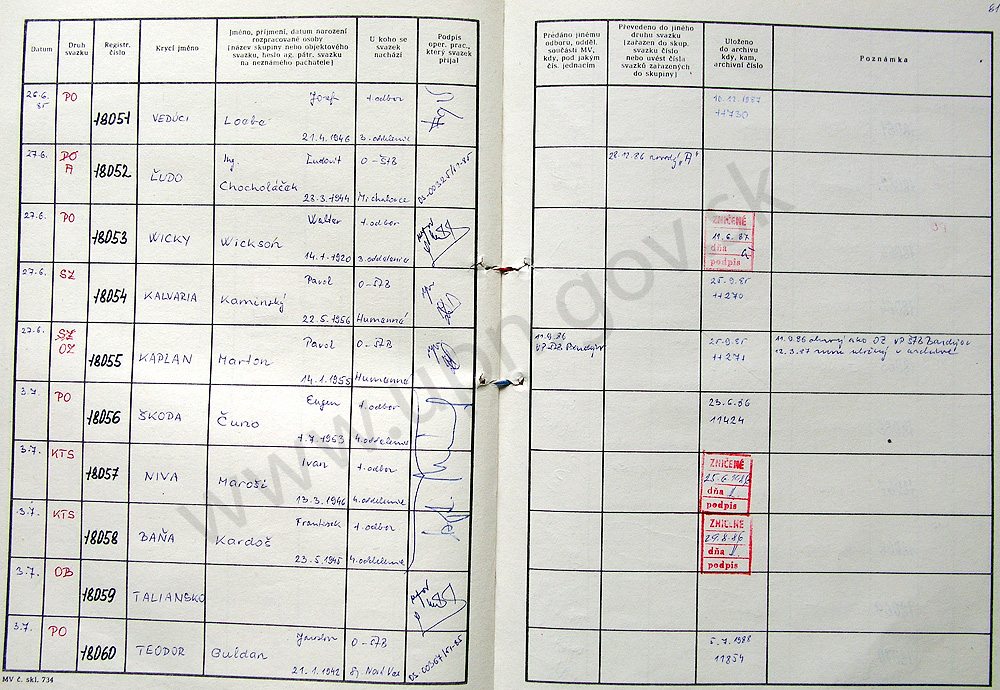 61
Datum
Druh
svazku
Registr.
číslo
Krycí jméno
Jméno, příjmení, datum narození
rozpracované osoby
(název skupiny nebo objektového
svazku, heslo ag. pátr. svazku
na neznámého pachatele)
U koho se
svazek
nachází
Podpis
oper. prac.,
který svazek
přijal
Předáno jinému
odboru, odděl.
součásti MV,
kdy, pod jakým
čís. jednacím
Převedeno do jiného
druhu svazku
(zařazen do skup.
svazku číslo
nebo uvést čísla
svazků zařazených
do skupiny)
Uloženo
do archivu
kdy, kam,
archivní číslo
Poznámka
26.6.
85
PO
18051
VEDÚCI
Jozef
Loebe
21.4.1946
1. odbor
3. oddelenie
10.12.1987
11730
27.6.
PO
A
18052
ĽUDO
Ing.
Ľudovít
Chocholáček
28.3.1941
O-ŠTB
Michalovce
OS-00325/17-85
28.12.86 "A"
27.6.
PO
18053
WICKY
Walter
Wicksoń
14.1.1920
1. odbor
3. oddelenie
ZNIČENÉ
11.6.87
dňa
podpis
27.6.
SZ
18054
KALVARIA
Pavol
Kaminský
22.5.1956
O-ŠTB
Humenné
25.9.85
11270
27.6.
SZ
OZ
18055
KAPLAN
Pavol
Marton
14.1.1955
O-ŠTB
Humenné
11.9.86
VP ŠTB Bardejov
25.9.85
11271
11.9.86 ako OZ VP ŠTB Bardejov
12.3.87 v archíve
3.7.
PO
18056
ŠKODA
Eugen
Čuno
1.7.1953
1. odbor
4. oddelenie
23.6.86
11424
3.7.
KTS
18057
NIVA
Ivan
Maroši
13.3.1946
1. odbor
4. oddelenie
ZNIČENÉ
25.6.1986
dňa
podpis
3.7.
KTS
18058
BAŇA
František
Kardoš
23.5.1945
1. odbor
4. oddelenie
ZNIČENÉ
29.8.86
dňa
podpis
3.7.
OB
18059
TALIANSKO
3.7.
PO
18060
TEODOR
Jaroslav
Guldan
21.1.1942
O-ŠTB
OS-00367/17-85
5.7.1988
11854
MV č. skl. 734
www.upn.gov.sk